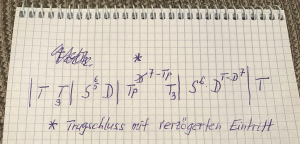 *
| T T₃ | S⁶₅ D | Tp⁷⁻Tp T₃ | S⁶ Dᵀ⁻D⁷ | T
* Trugschluss mit verzögerten Eintritt